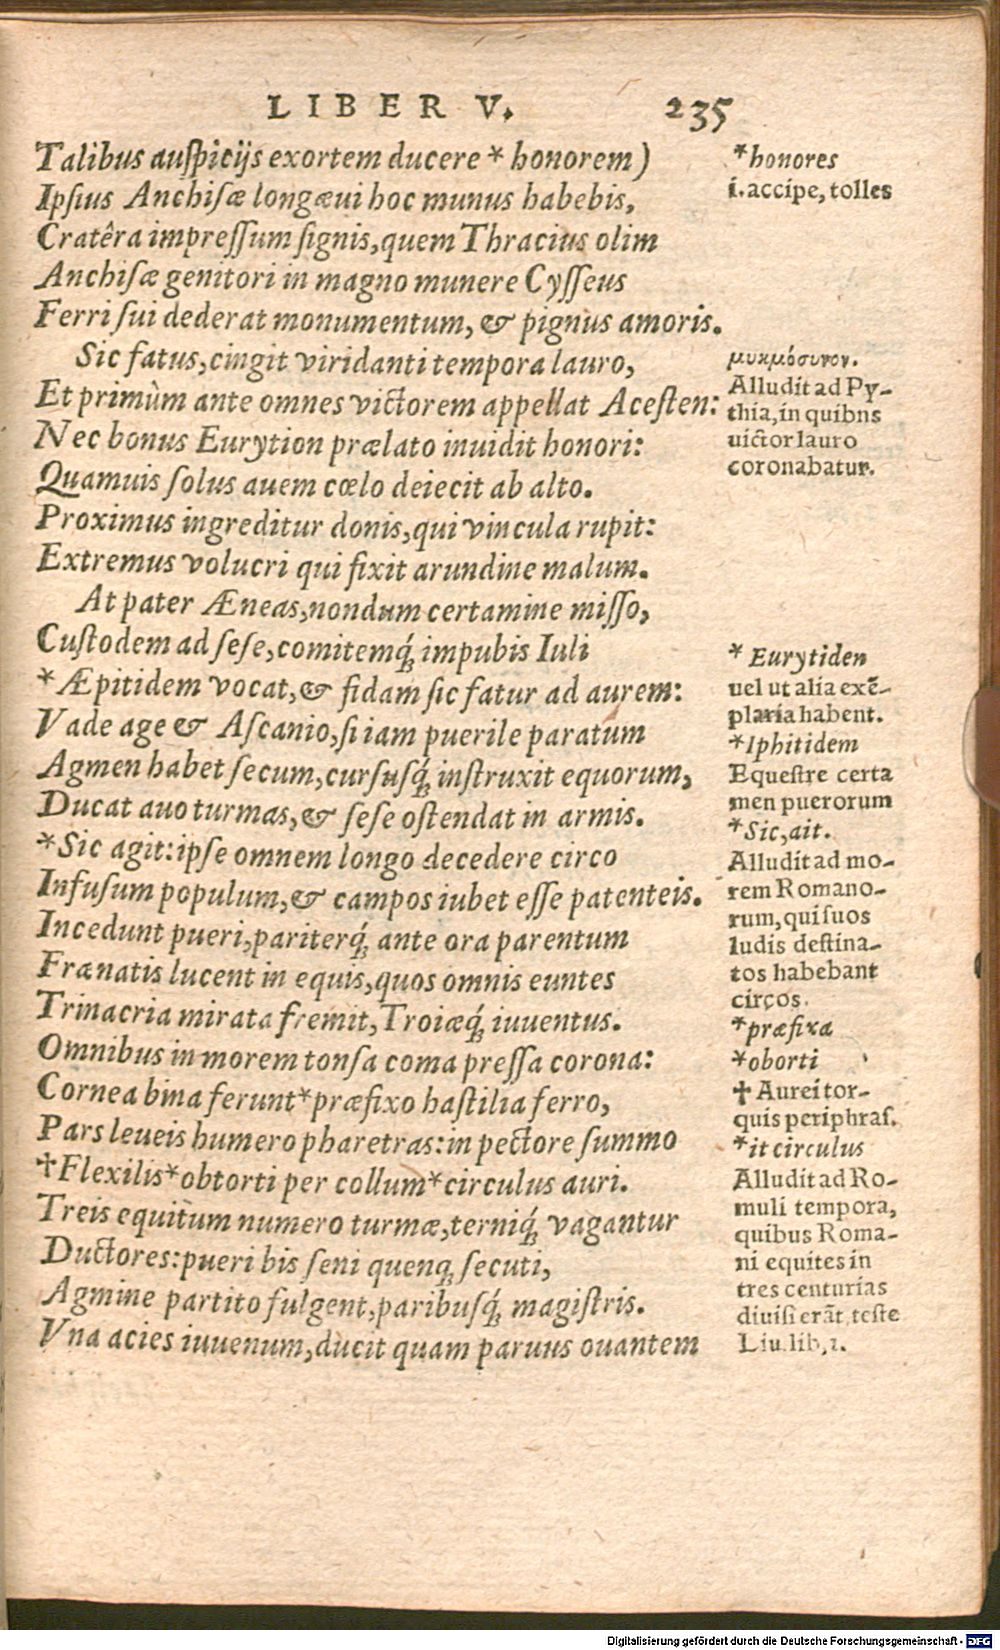 LIBER V. 235
Talibus auſpicijs exortem ducere * honorem)
Ipſius Anchiſæ longæui hoc munus habebis,
Cratêra impreſſum ſignis, quem Thracius olim
Anchiſæ genitori in magno munere Cyſſeus
Ferri ſui dederat monumentum, & pignus amoris.
Sic fatus, cingit viridanti tempora lauro,
Et primùm ante omnes victorem appellat Aceſten:
Nec bonus Eurytion prælato inuidit honori:
Quamuis ſolus auem cœlo deiecit ab alto.
Proximus ingreditur donis, qui vincula rupit:
Extremus volucri qui fixit arundine malum.
At pater Æneas, nondum certamine miſſo,
Cuſtodem ad ſeſe, comitemq́; impubis Iuli
* Æpitidem vocat, & fidam ſic fatur ad aurem:
Vade age & Aſcanio, ſi iam puerile paratum
Agmen habet ſecum, curſusq́; inſtruxit equorum,
Ducat auo turmas, & ſeſe oſtendat in armis.
*Sic agit: ipſe omnem longo decedere circo
Infuſum populum, & campos iubet eſſe patenteis.
Incedunt pueri, pariterq́; ante ora parentum
Frænatis lucent in equis, quos omnis euntes
Trinacria mirata fremit, Troiæq́; iuuentus.
Omnibus in morem tonſa coma preſſa corona:
Cornea bina ferunt * præfixo haſtilia ferro,
Pars leueis humero pharetras: in pectore ſummo
†Flexilis * obtorti per collum * circulus auri.
Treis equitum numero turmæ, terniq́; vagantur
Ductores: pueri bis ſeni quenq; ſecuti,
Agmine partito fulgent, paribuſq́; magiſtris.
Vna acies iuuenum, ducit quam paruus ouantem
*honores
i. accipe, tolles
μνημόσυνον.
Alludit ad Py-
thia, in quibns
uictor lauro
coronabatur.
* Eurytiden
uel ut alia exē-
plaria habent.
*Iphitidem
Equeſtre certa
men puerorum
*Sic, ait.
Alludit ad mo-
rem Romano-
rum, qui ſuos
ludis deſtina-
tos habebant
circos.
*præfixa
*oborti
† Aurei tor-
quis periphraſ.
*it circulus
Alludit ad Ro-
muli tempora,
quibus Roma-
ni equites in
tres centurias
diuiſi erāt, teſte
Liu. lib, 1.
Digitalisierung gefördert durch die Deutsche Forschungsgemeinschaft - DFG